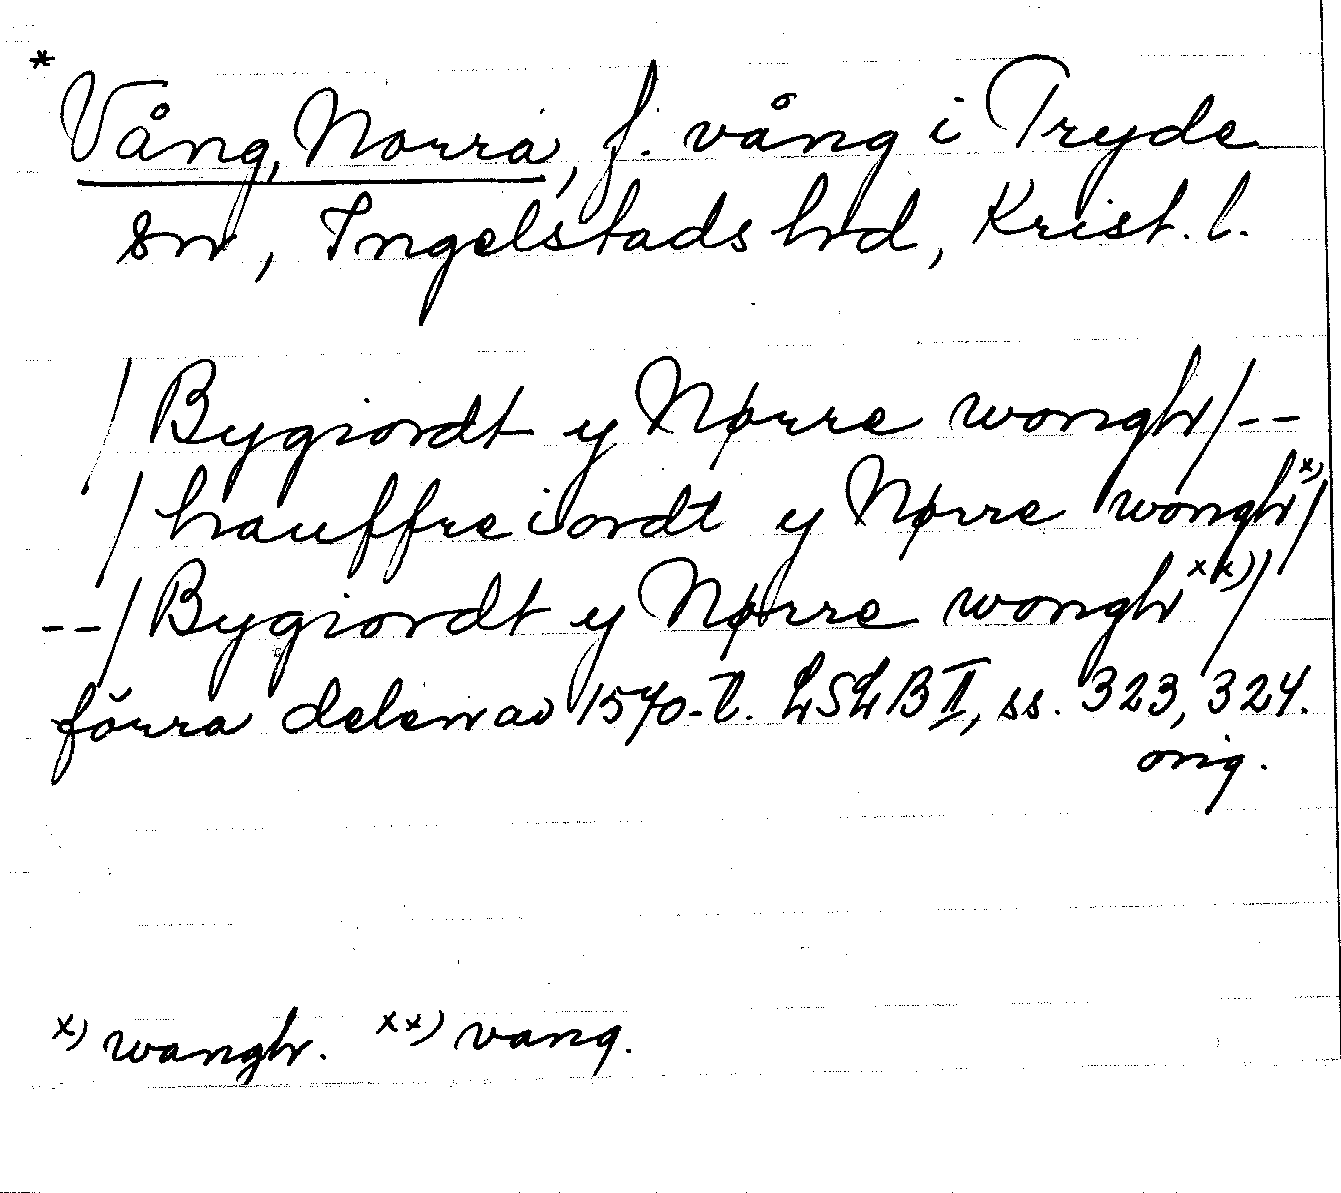 * Vång, Norra, f. vång i Tryde
sn, Ingelstads hd, Krist. l.
/ Bygiordt y Nørre wongh / --
/ hauffre iordt y Nørre wongh x) /
-- / Bygiordt y Nørre wongh xx) /
förra delen av 1570-t. LSLB II, ss. 323, 324.
orig.
x) wangh. xx) vang.